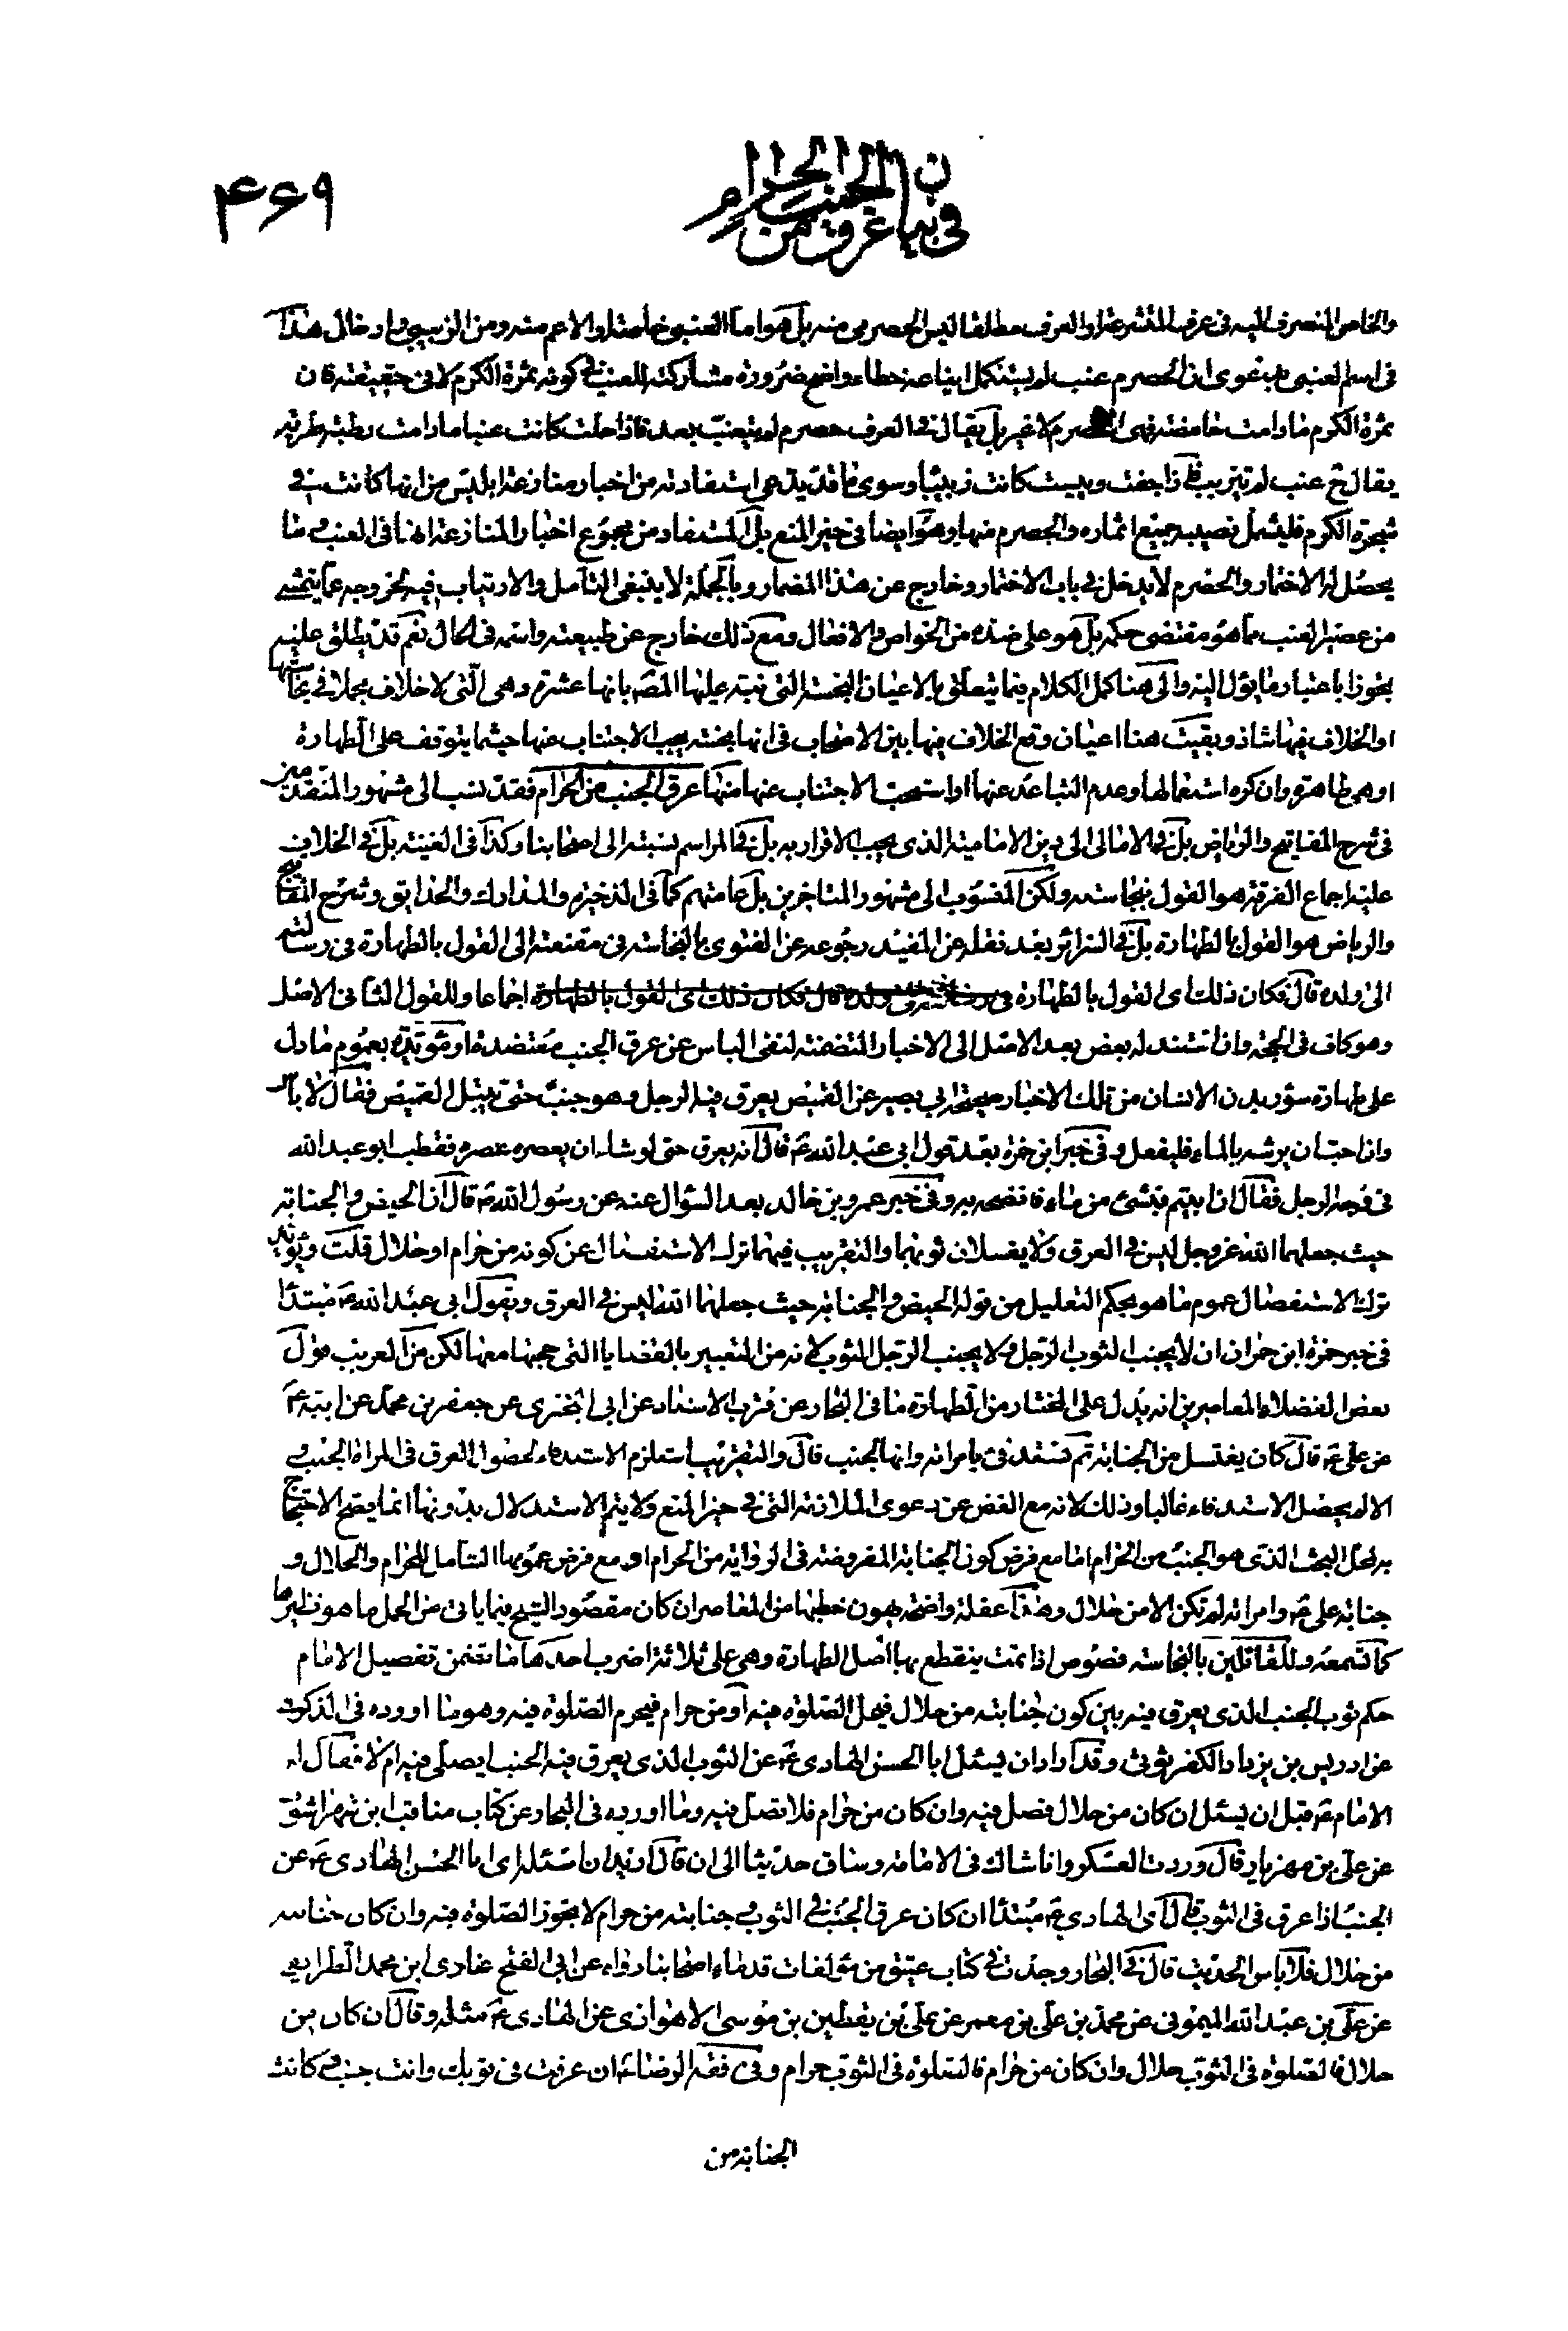 ۴۶۹
في بيان عرق الجنب من الحرام
والخاص المنصرف اليه في عرف المتشرعة او العرف مطلقا ليس الحصرمي منه بل هو اما العنبي خاصة او الاعم منه ومن الزبيبي وادخال هذا
في اسم العنبي بدعوى ان الحصرم عنب لم يستكمل ايناعه خطاء واضح ضرورة مشاركته للعنب في كونه ثمرة الكرم لا في حقيقته فان
ثمرة الكرم ما دامت حامضة فهي الحصرم لا غير بل يقال في العرف حصرم لم يتعنب بعد فاذا حلت كانت عنبا ما دامت رطبة طرية
يقال ح عنب لم يتزبب فاذا جفت ويبست كانت زبيبا وسوى ما قد يدعى استفادته من اخبار منازعة ابليس من انها كانت في
شجرة الكرم فليشمل نصيبه جميع اثماره والحصرم منها وهو ايضا في حيز المنع بل المستفاد من مجموع اخبار المنازعة انها في العنب وما
يحصل له الاختمار والحصرم لا يدخل في باب الاختمار وخارج عن هذا المضمار وبالجملة لا ينبغي التامل والارتياب فيه لخروجه عما يتمشى
من عصير العنب مما هو مقتضى حكمه بل هو على ضده من الخواص والافعال ومع ذلك خارج عن طبيعته واسمه في الحال نعم قد يطلق عليه
تجوزا باعتبار ما يؤل اليه والى هنا كمل الكلام فيما يتعلق بالاعيان النجسة التي نبه عليها المصَ بانها عشرة وهي التي لا خلاف مجملا في نجاستها
او الخلاف فيها شاذ وبقيت هنا اعيان وقع الخلاف فيها بين الاصحاب في انها نجسة يجب الاجتناب عنها حيثما يتوقف على الطهارة
او هي طاهرة وان كره استعمالها وعدم التباعد عنها او استحب الاجتناب عنها منها عرق الجنب من الحرام فقد نسب الى مشهور المتقدمين
في شرح المفاتيح والرياض بل في الامالى الى دين الامامية الذي يجب الاقرار به بل في المراسم نسبته الى اصحابنا وكذا في الغنية بل في الخلاف
عليه اجماع الفرقة هو القول بنجاسته ولكن المنسوب الى مشهور المتاخرين بل عامتهم كما في الذخيرة والمدارك والحدايق وشرح المفاتيح
والرياض هو القول بالطهارة بل في السرائر بعد نقله عن المفيد رجوعه عن الفتوى بالنجاسة في مقنعته الى القول بالطهارة في رسالته
الى ولده قال فكان ذلك اي القول بالطهارة اجماعا وللقول الثاني الاصل
وهو كاف في الحجة وان استند له بعض بعد الاصل الى الاخبار المتضمنة لنفي الباس عن عرق الجنب معتضدة او مؤيدة بعموم ما دل
على طهارة سؤر بدن الانسان من تلك الاخبار صحيحة ابي بصير عن القميص يعرق فيه الرجل وهو جنب حتى يبتل القميص فقال لا باس
وان احب ان يرشه بالماء فليفعل وفي خبر ابن حمزة بعد قول ابي عبد الله ع قال انه يعرق حتى لو شاء ان يعصره عصره فقطب ابو عبد الله
في وجه الرجل فقال ان ابيتم فشئ من ماء فانضحه به وفي خبر عمرو بن خالد بعد السؤال عنه عن رسول الله ص قال ان الحيض والجنابة
حيث جعلهما الله عز وجل ليس في العرق ولا يغسلان ثوبهما والتقريب فيهما ترك الاستفصال عن كونه من حرام او حلال قلت ويؤيد
ترك الاستفصال عموم ما هو بحكم التعليل من قوله الحيض والجنابة حيث جعلهما الله ليس في العرق وبقول ابي عبد الله ع مبتدئا
في خبر حمزة ابن حمران ان لا يجنب الثوب الرجل ولا يجنب الرجل الثوب لانه من التعبير بالقضايا التي حججها معها لكن من الغريب قول
بعض الفضلاء المعاصرين انه يدل على المختار من الطهارة ما في البحار عن قرب الاسناد عن ابي البختري عن جعفر بن محمد عن ابيه ع
عن علي ع قال كان يغتسل من الجنابة ثم يستدفئ بامراته وانها لجنب قال والتقريب استلزم الاستدفاء لحصول العرق في المراة الجنب
الا لم يحصل الاستدفاء غالبا وذلك لانه مع الغض عن دعوى الملازمة التي في حيز المنع ولا يتم الاستدلال بدونها انما يصح الاحتجاج
به لمحل البحث الذي هو الجنب من الحرام اما مع فرض كون الجنابة المفروضة في الرواية من الحرام او مع فرض عمومها الشامل للحرام والحلال و
جنابة علي ع وامراته لم تكن الا من حلال وهذا غفلة واضحة يهون خطبها من المعاصر ان كان مقصود الشيخ فيما ياتى من الحمل ما هو نظيرها
كما تسمعه وللقائلين بالنجاسة نصوص اذا تمت ينقطع بها اصل الطهارة وهي على ثلاثة اضرب احدها ما تضمن تفصيل الامام
حكم ثوب الجنب الذي يعرق فيه بين كون جنابته من حلال فيحل الصلوة فيه او من حرام فيحرم الصلوة فيه وهو ما اورده في الذكرى
عن ادريس بن يزداد الكفرثوثي وقد اراد ان يسئل ابا الحسن الهادي ع عن الثوب الذي يعرق فيه الجنب ايصلى فيه ام لا فقال له
الامام ع قبل ان يسئل ان كان من حلال فصل فيه وان كان من حرام فلا تصل فيه وما اورده في البحار عن كتاب مناقب ابن شهراشوب
عن علي بن مهزيار قال وردت العسكر وانا شاك في الامامة وساق حديثا الى ان قال اريد ان اسئله اي ابا الحسن الهادي ع عن
الجنب اذا عرق في الثوب قال اي الهادي ع مبتدئا ان كان عرق الجنب في الثوب وجنابته من حرام لا يجوز الصلوة فيه وان كان جنابته
من حلال فلا باس الحديث قال في البحار وجدت في كتاب عتيق من مؤلفات قدماء اصحابنا رواه عن ابي الفتح غازي ابن محمد الطرايفي
عن علي بن عبد الله الميموني عن محمد بن علي بن معمر عن علي بن يقطين بن موسى الاهوازي عن الهادي ع مثله وقال ان كان من
حلال فالصلوة في الثوب حلال وان كان من حرام فالصلوة في الثوب حرام وفي فقه الرضا ع ان عرقت في ثوبك وانت جنب وكانت
الجنابة من